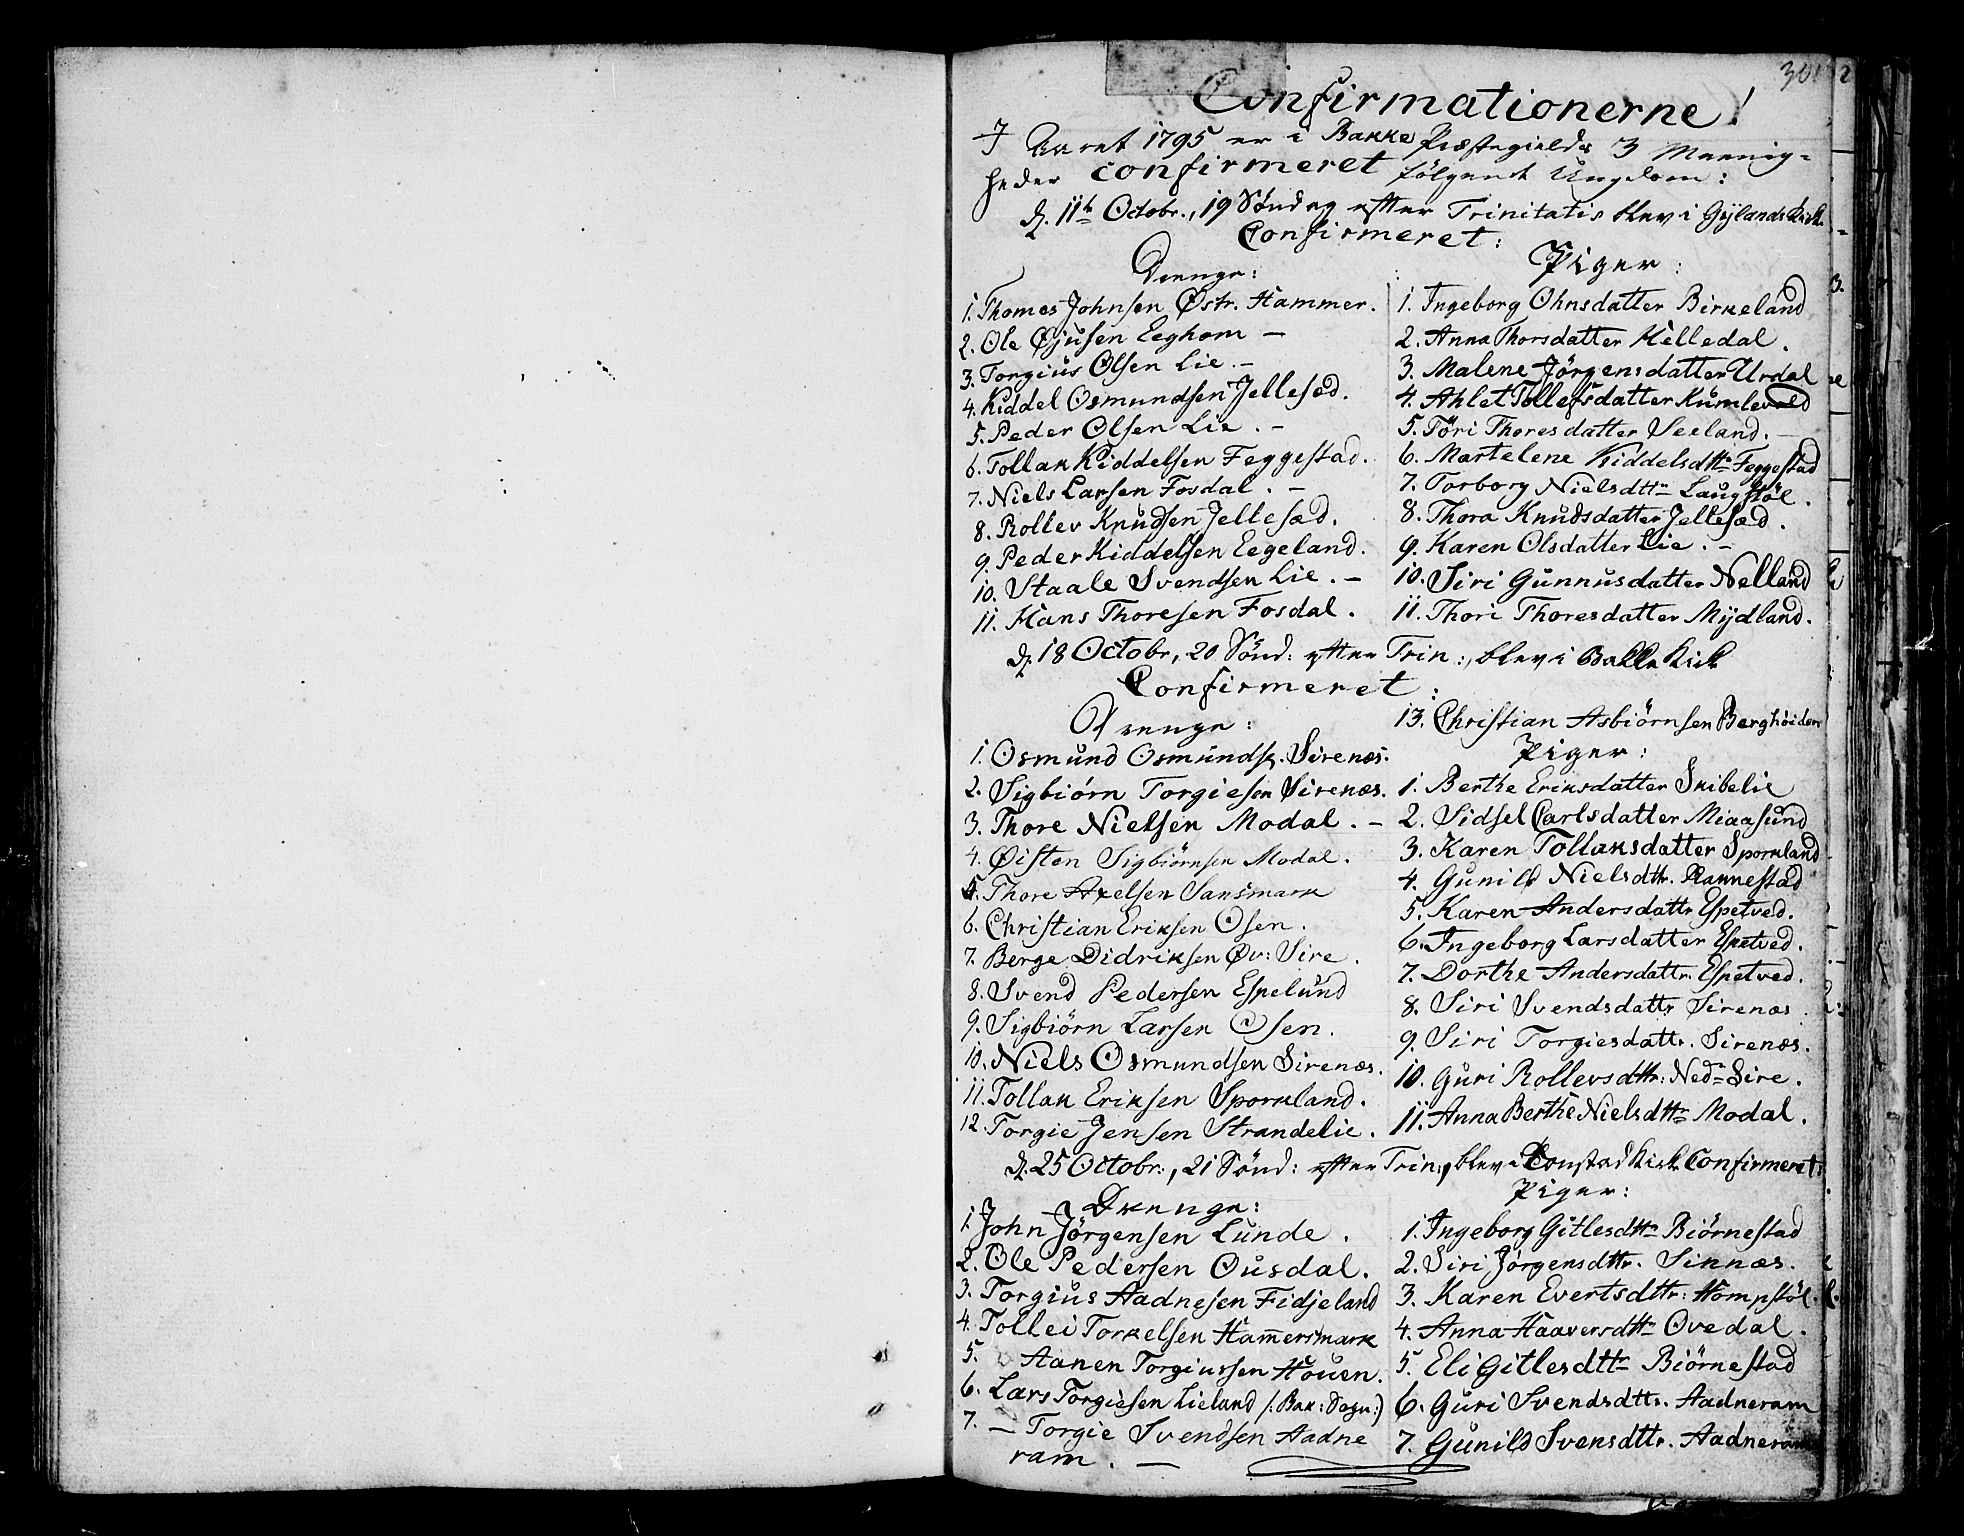 301
Confirmationerne!
I Aaret 1795 er i Bakke Præstegields 3 Meenig-
heder confirmeret følgende Ungdom:
d. 11te Octobr., 19 Søndag efter Trinitatis blev i Gylands Kirk
Confirmeret:
Drenge:
1. Thomas Johnsen Østr. Hammer.
2. Ole Øjusen Eeghom —
3. Torgius Olsen Lie. —
4. Kiddel Osmundsen Jellesæd.
5. Peder Olsen Lie. —
6. Tollak Kiddelsen Feggestad.
7. Niels Larsen Fosdal. —
8. Rollev Knudsen Jellesæd.
9. Peder Kiddelsen Eegeland.
10. Staale Svendsen Lie. —
11. Hans Thoresen Fosdal.
Piger:
1. Ingeborg Ohnsdatter Birkeland
2. Anna Thorsdatter Helledal.
3. Malene Jörgensdatter Urdal
4. Ahlet Tollefsdatter Kumleved
5. Töri Thoresdatter Seeland. —
6. Martelene Kiddelsdttr Feggestad
7. Torborg Nielsdttr Laugstöl.
8. Thora Knudsdatter Jellesæd.
9. Karen Olsdatter Lie. —
10. Siri Gunnusdatter Nelland
11. Thori Thoresdatter Mydland.
d. 18 Octobr, 20 Sönd: efter Trin:, blev i Bakke Kirk
Confirmeret:
Drenge:
1. Osmund Osmundss. Sirenæs.
2. Sigbiörn Torgiesen Sirenæs.
3. Thore Nielsen Modal. —
4. Øisten Sigbiörnsen Modal.
5. Thore Axelsen Sansmark
6. Christian Eriksen Osen.
7. Berge Didriksen Øv: Sire.
8. Svend Pedersen Espelund
9. Sigbiörn Larsen Osen.
10. Niels Osmundsen Sirenæs.
11. Tollak Eriksen Sporkland.
12. Torgie Jensen Strandelie.
13. Christian Asbiörnsen Berghöiden
Piger:
1. Berthe Eriksdatter Snibelie
2. Sidsel Carlsdatter Miaasund
3. Karen Tollaksdatter Sporkland
4. Gunild Nielsdttr. Rannestad
5. Karen Andersdattr Espetved.
6. Ingeborg Larsdatter Espetved.
7. Dorthe Andersdattr. Espetved.
8. Siri Svendsdattr Sirenæs.
9. Siri Torgiesdattr. Sirenæs.
10. Guri Rollevsdttr: Nedr Sire.
11. Anna Berthe Nielsdttr Modal.
d. 25 Octobr:, 21 Sönd: efter Trin:, blev i Tonstad Kirk Confirmeret:
Drenge:
1. John Jörgensen Lunde.
2. Ole Pedersen Ousdal.
3. Torgius Aadnesen Fidjeland
4. Tollei Torkelsen Hamersmark
5. Aanen Torgiussen Houen.
6. Lars Torgiesen Lieland /: Bak: Sogn:)
7. — Torgie Svendsen Aadne
ram. —
Piger:
1. Ingeborg Gitlesdttr Biörnestad
2. Siri Jörgensdttr. Sinnæs.
3. Karen Evertsdttr: Hompstöl.
4. Anna Haaversdttr Ovedal.
5. Eli Gitlesdttr Biörnestad
6. Guri Svendsdttr. Aadneram
7. Gunild Svensdttr. Aadneram